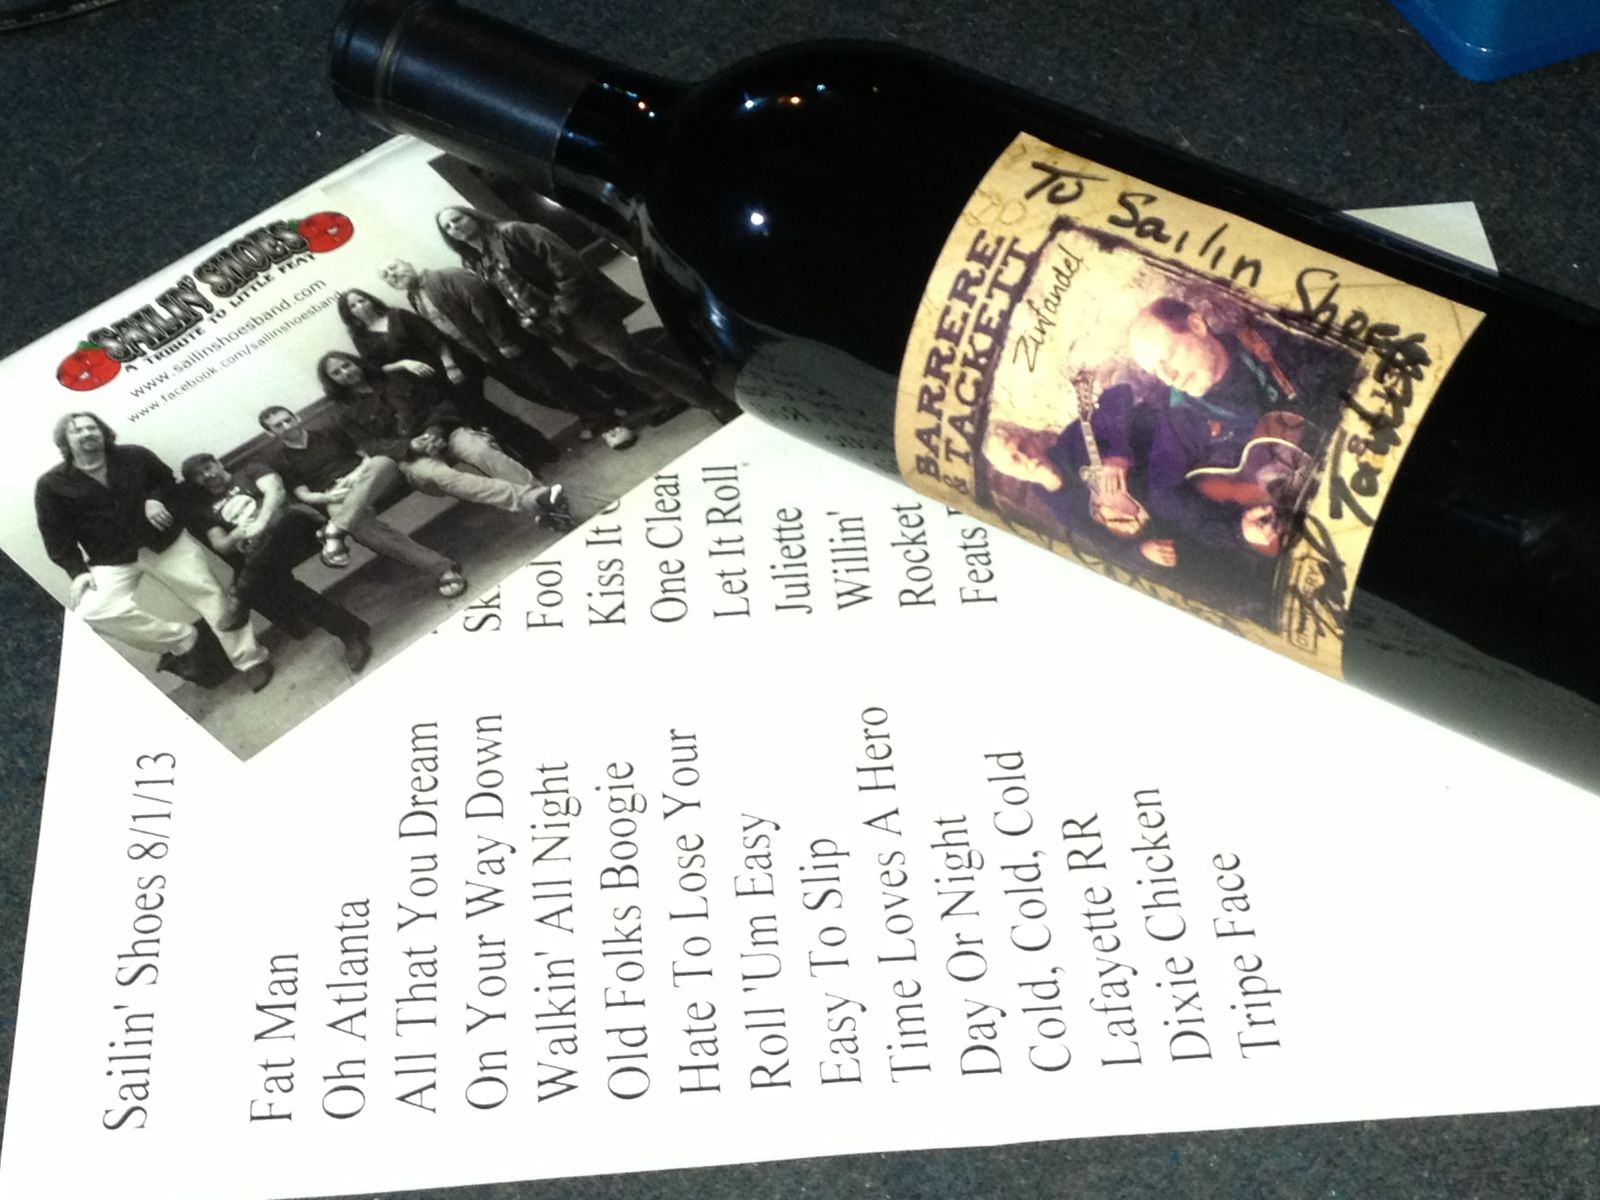 SAILIN' SHOES
A TRIBUTE TO LITTLE FEAT
www.sailinshoesband.com
www.facebook.com/sailinshoesband
To Sailin Shoes
BARRERE
& TACKETT
Zinfandel
Sailin' Shoes 8/1/13
Fat Man
Oh Atlanta
All That You Dream
On Your Way Down
Walkin' All Night
Old Folks Boogie
Hate To Lose Your
Roll 'Um Easy
Easy To Slip
Time Loves A Hero
Day Or Night
Cold, Cold, Cold
Lafayette RR
Dixie Chicken
Tripe Face
Fool
Kiss It
One Clear
Let It Roll
Juliette
Willin'
Rocket
Feats